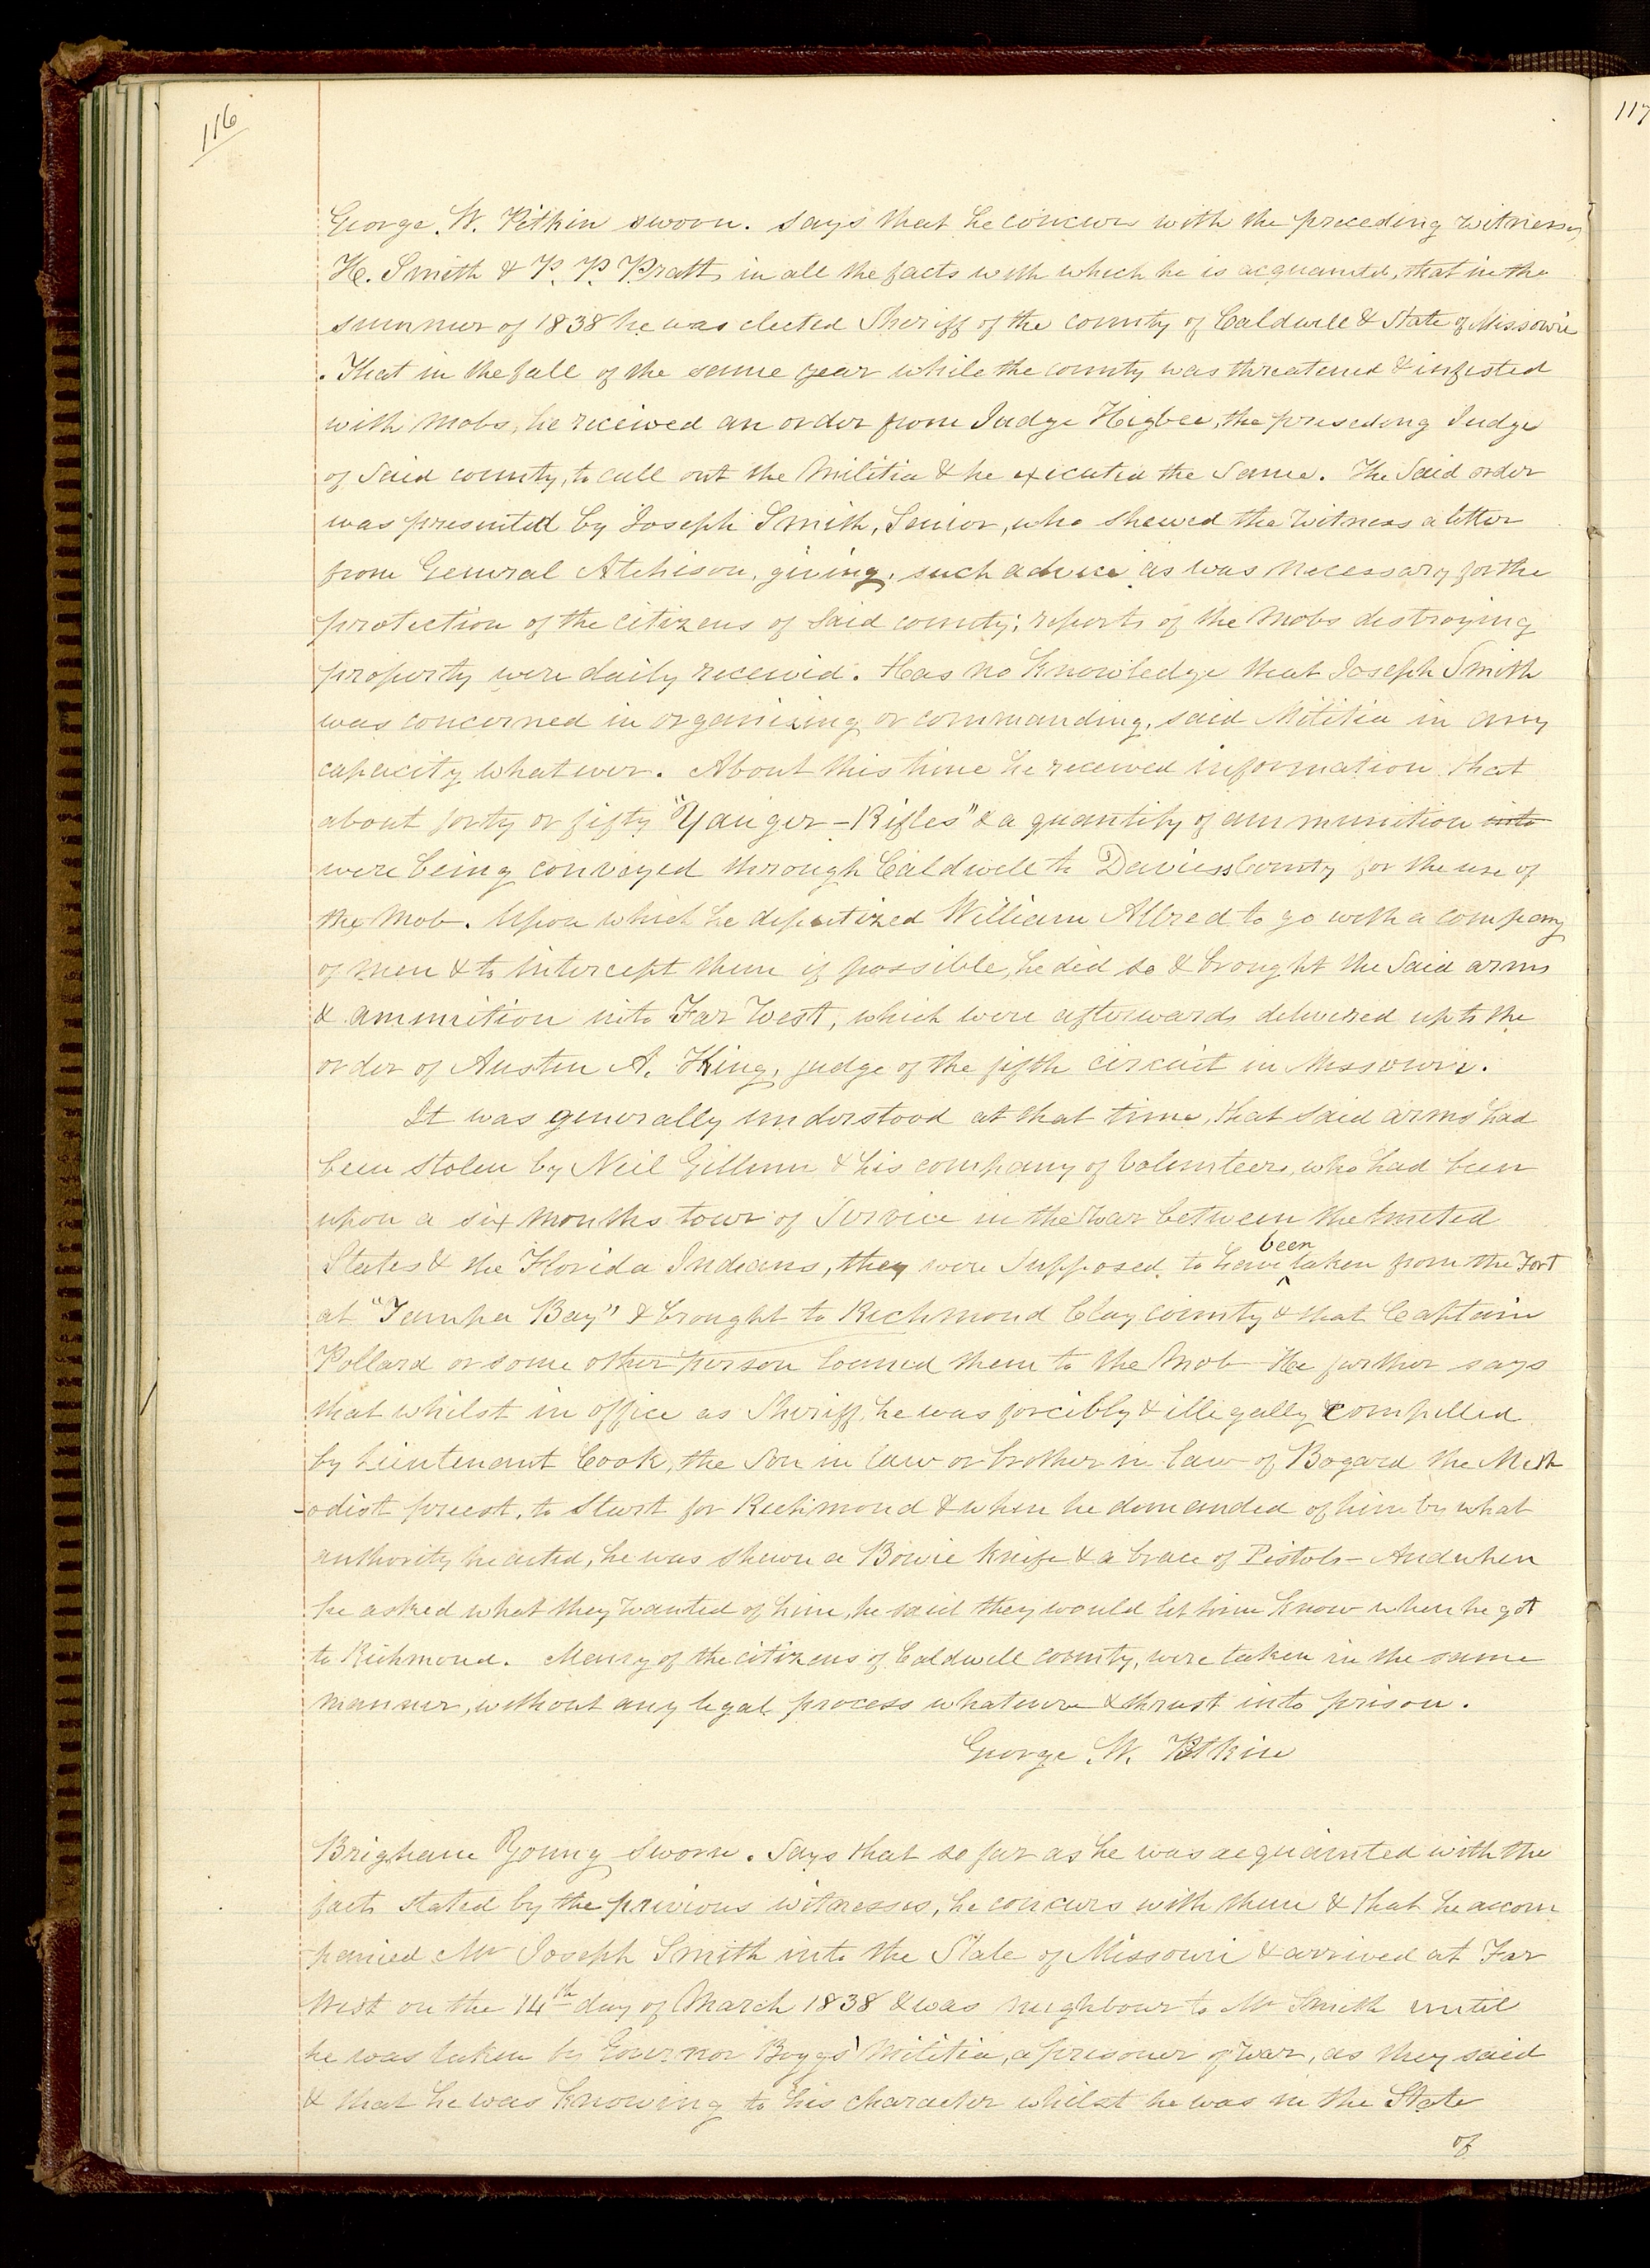 116
117
George W. Pitkin sworn. Says that he concurs with the preceding witnesses,
H. Smith & P. P. Pratt, in all the facts with which he is acquainted, that in the
summer of 1838 he was elected Sheriff of the county of Caldwell & State of Missouri
. That in the fall of the same year while the county was threatened & infested
with mobs, he received an order from Judge Higbee, the preseding Judge
of Said county, to call out the Militia & he executed the Same. The Said order
was presented by Joseph Smith, Senior, who shewed the witness a letter
from General Atchison, giving, such advice as was necessary for the
protection of the citizens of Said county; reports of the mobs destroying
property were daily received. Has no knowledge that Joseph Smith
was concerned in organizing or commanding, said Militia in any
capacity whatever. About this time he received information that
about forty or fifty "Yauger-Rifles" & a quantity of ammunition into
were being conveyed through Caldwell to Daviess County for the use of
the mob. Upon which he deputized William Allred to go with a company
of men & to intercept them if possible, he did so & brought the Said arms
& ammunition into Far West, which were afterwards delivered up to the
order of Austin A. King, judge of the fifth circuit in Missouri.
It was generally understood at that time, that said arms had
been stolen by Neil Gillium & his company of volunteers, who had been
upon a six months tour of Service in the war between the United
been
States & the Florida Indians, they were Supposed, to have ^ taken from the Fort
at "Tampa Bay" & brought to Richmond Clay County & that Captain
Pollard or some other person loaned them to the Mob He further says
that whilst in office as Sheriff, he was forcibly & illegally compelled
by Lieutenant Cook, the Son in law or brother in law of Bogard the Meth
-odist preest, to Start for Richmond & when he demanded of him by what
authority he acted, he was shewn a Bowie Knife & a brace of Pistols- And when
he asked what they wanted of him, he said they would let him know when he got
to Richmond. Many of the citizens of Caldwell county, were taken in the same
manner, without any legal process whatever & thrust into prison.
George W. Pitkin
Brigham Young Sworn. Says that so far as he was acquainted with the
facts stated by the previous witnesses, he concurs with them & that he accom
panied Mr Joseph Smith into the State of Missouri & arrived at Far
West on the 14th day of March 1838 & was neighbour to Mr Smith until
he was taken by Governor Boggs' Militia, a prisoner of war, as they said
& that he was knowing to his character whilst he was in the State
of